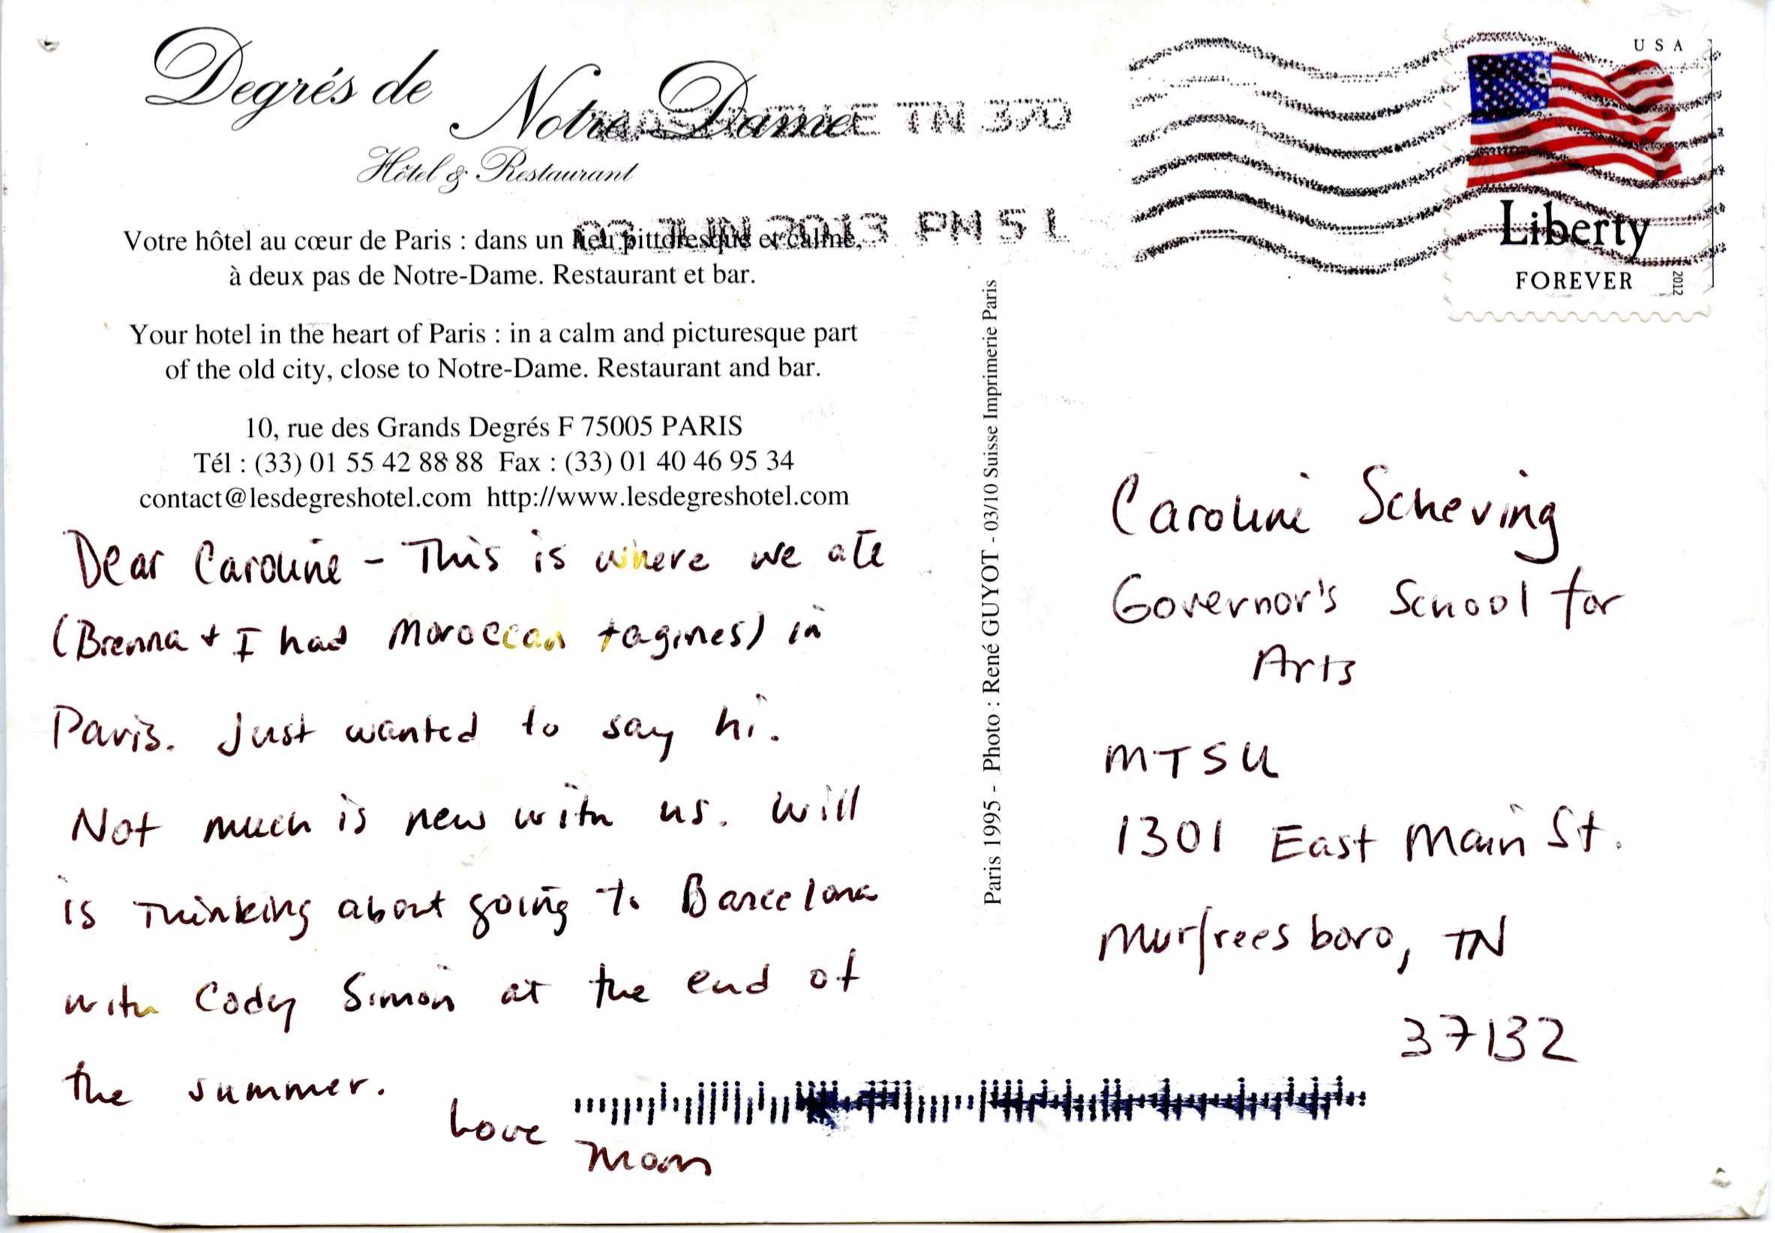 Degrés de Notre Dame
Hôtel & Restaurant
Votre hôtel au cœur de Paris : dans un lieu pittoresque et calme,
à deux pas de Notre-Dame. Restaurant et bar.
Your hotel in the heart of Paris : in a calm and picturesque part
of the old city, close to Notre-Dame. Restaurant and bar.
10, rue des Grands Degrés F 75005 PARIS
Tél : (33) 01 55 42 88 88 Fax : (33) 01 40 46 95 34
contact@lesdegreshotel.com http://www.lesdegreshotel.com
Dear Caroline - This is where we ate
(Brenna + I had Moroccan tagines) in
Paris. Just wanted to say hi.
Not much is new with us. Will
is thinking about going to Barcelona
with Cody Simon at the end of
the summer.
Love
Mom
Paris 1995 - Photo : René GUYOT - 03/10 Suisse Imprimerie Paris
TN 370
JUN 2013 PM 5 L
USA
Liberty
FOREVER
2012
Caroline Scheving
Governor's School for
Arts
MTSU
1301 East Main St.
Murfreesboro, TN
37132